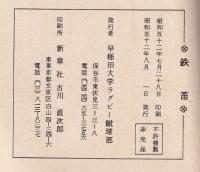 鉄笛
昭和五十二年七月二十八日 印刷
昭和五十二年八月 一日 発行
不許複製
非売品
発行者 早稲田大学ラグビー蹴球部
保谷市東伏見三-三-一八
電話(〇四二四)六一-三一七六
印刷所 新章社 古川 直次郎
東京都文京区白山四-三四-六
電話(〇三)八一三-八一三七